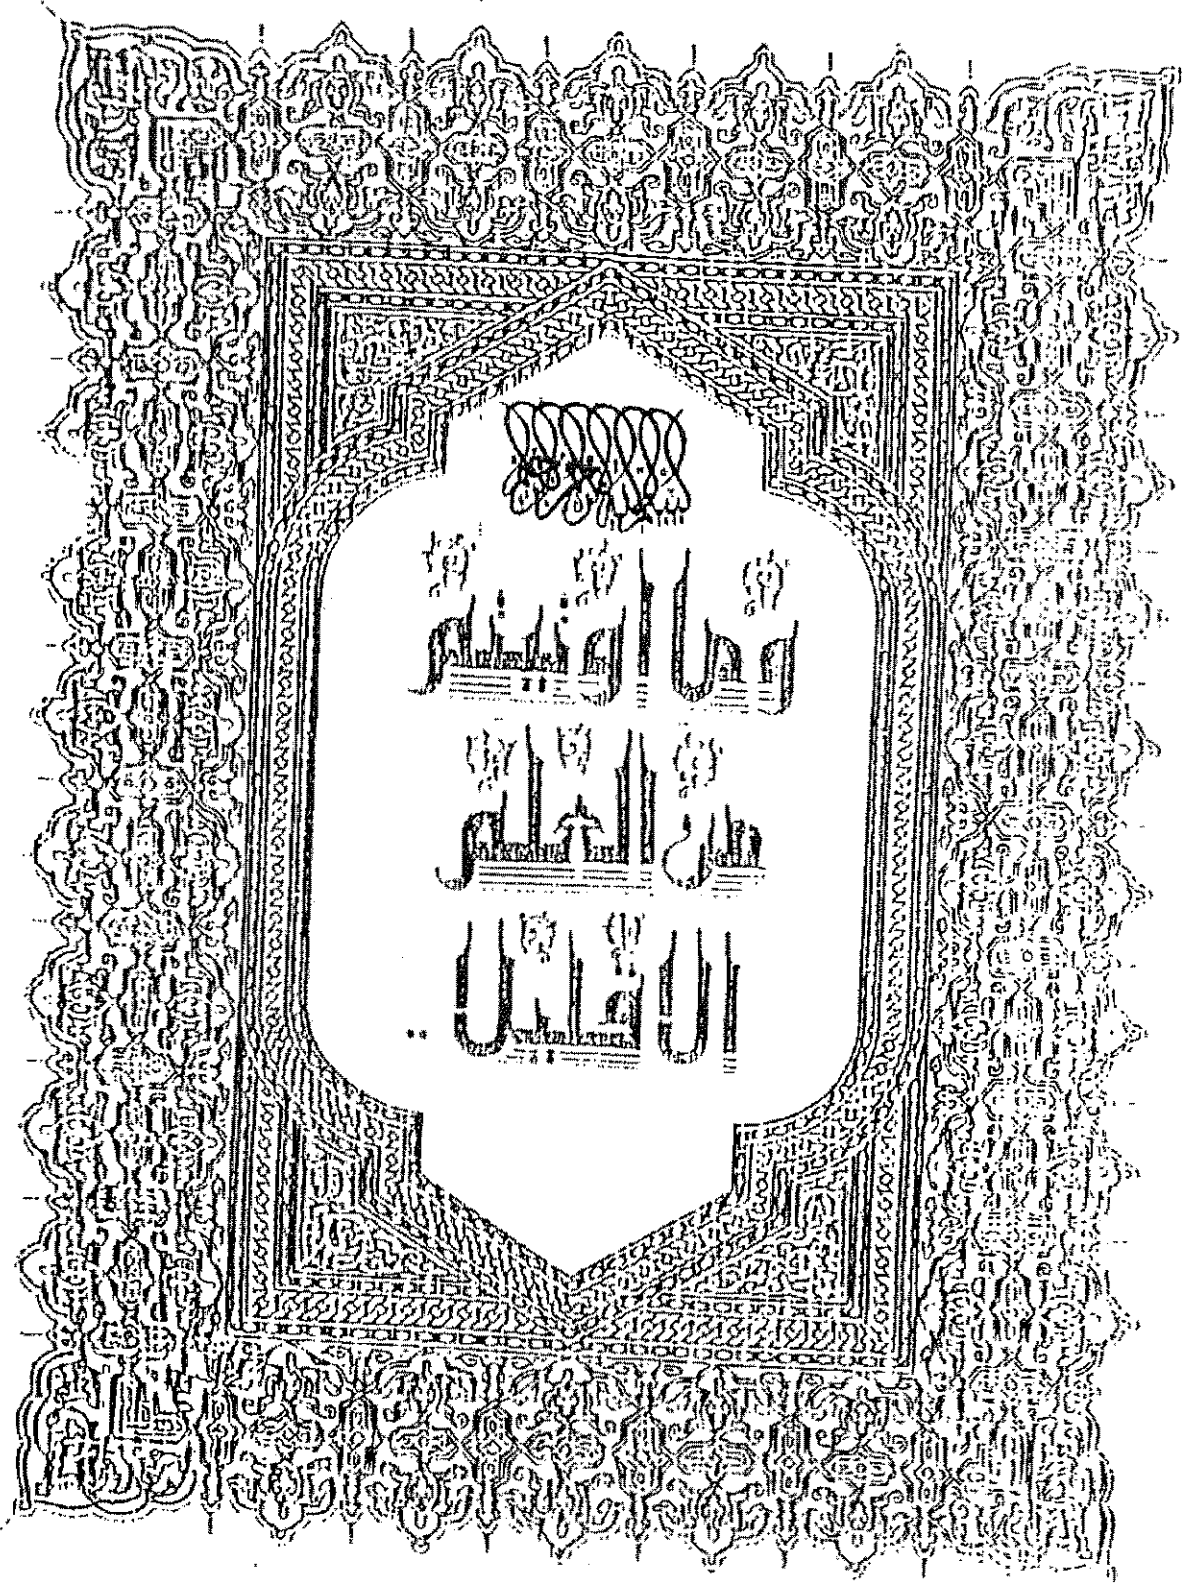 وما اوتيتم
من العلم
الا قليلا